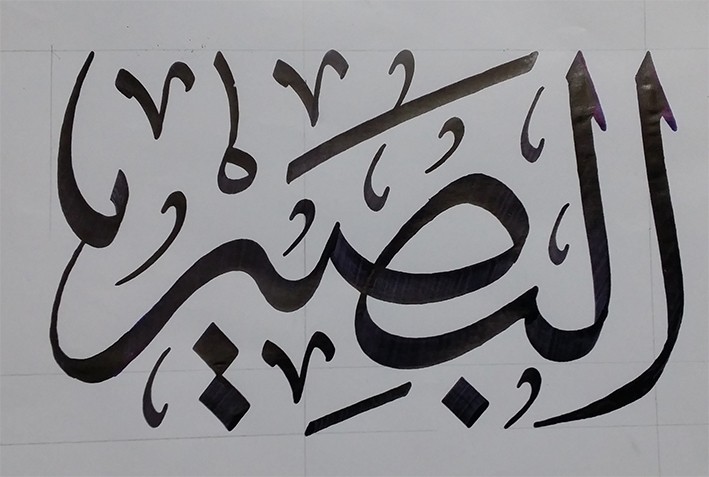 البَصِيْرُ